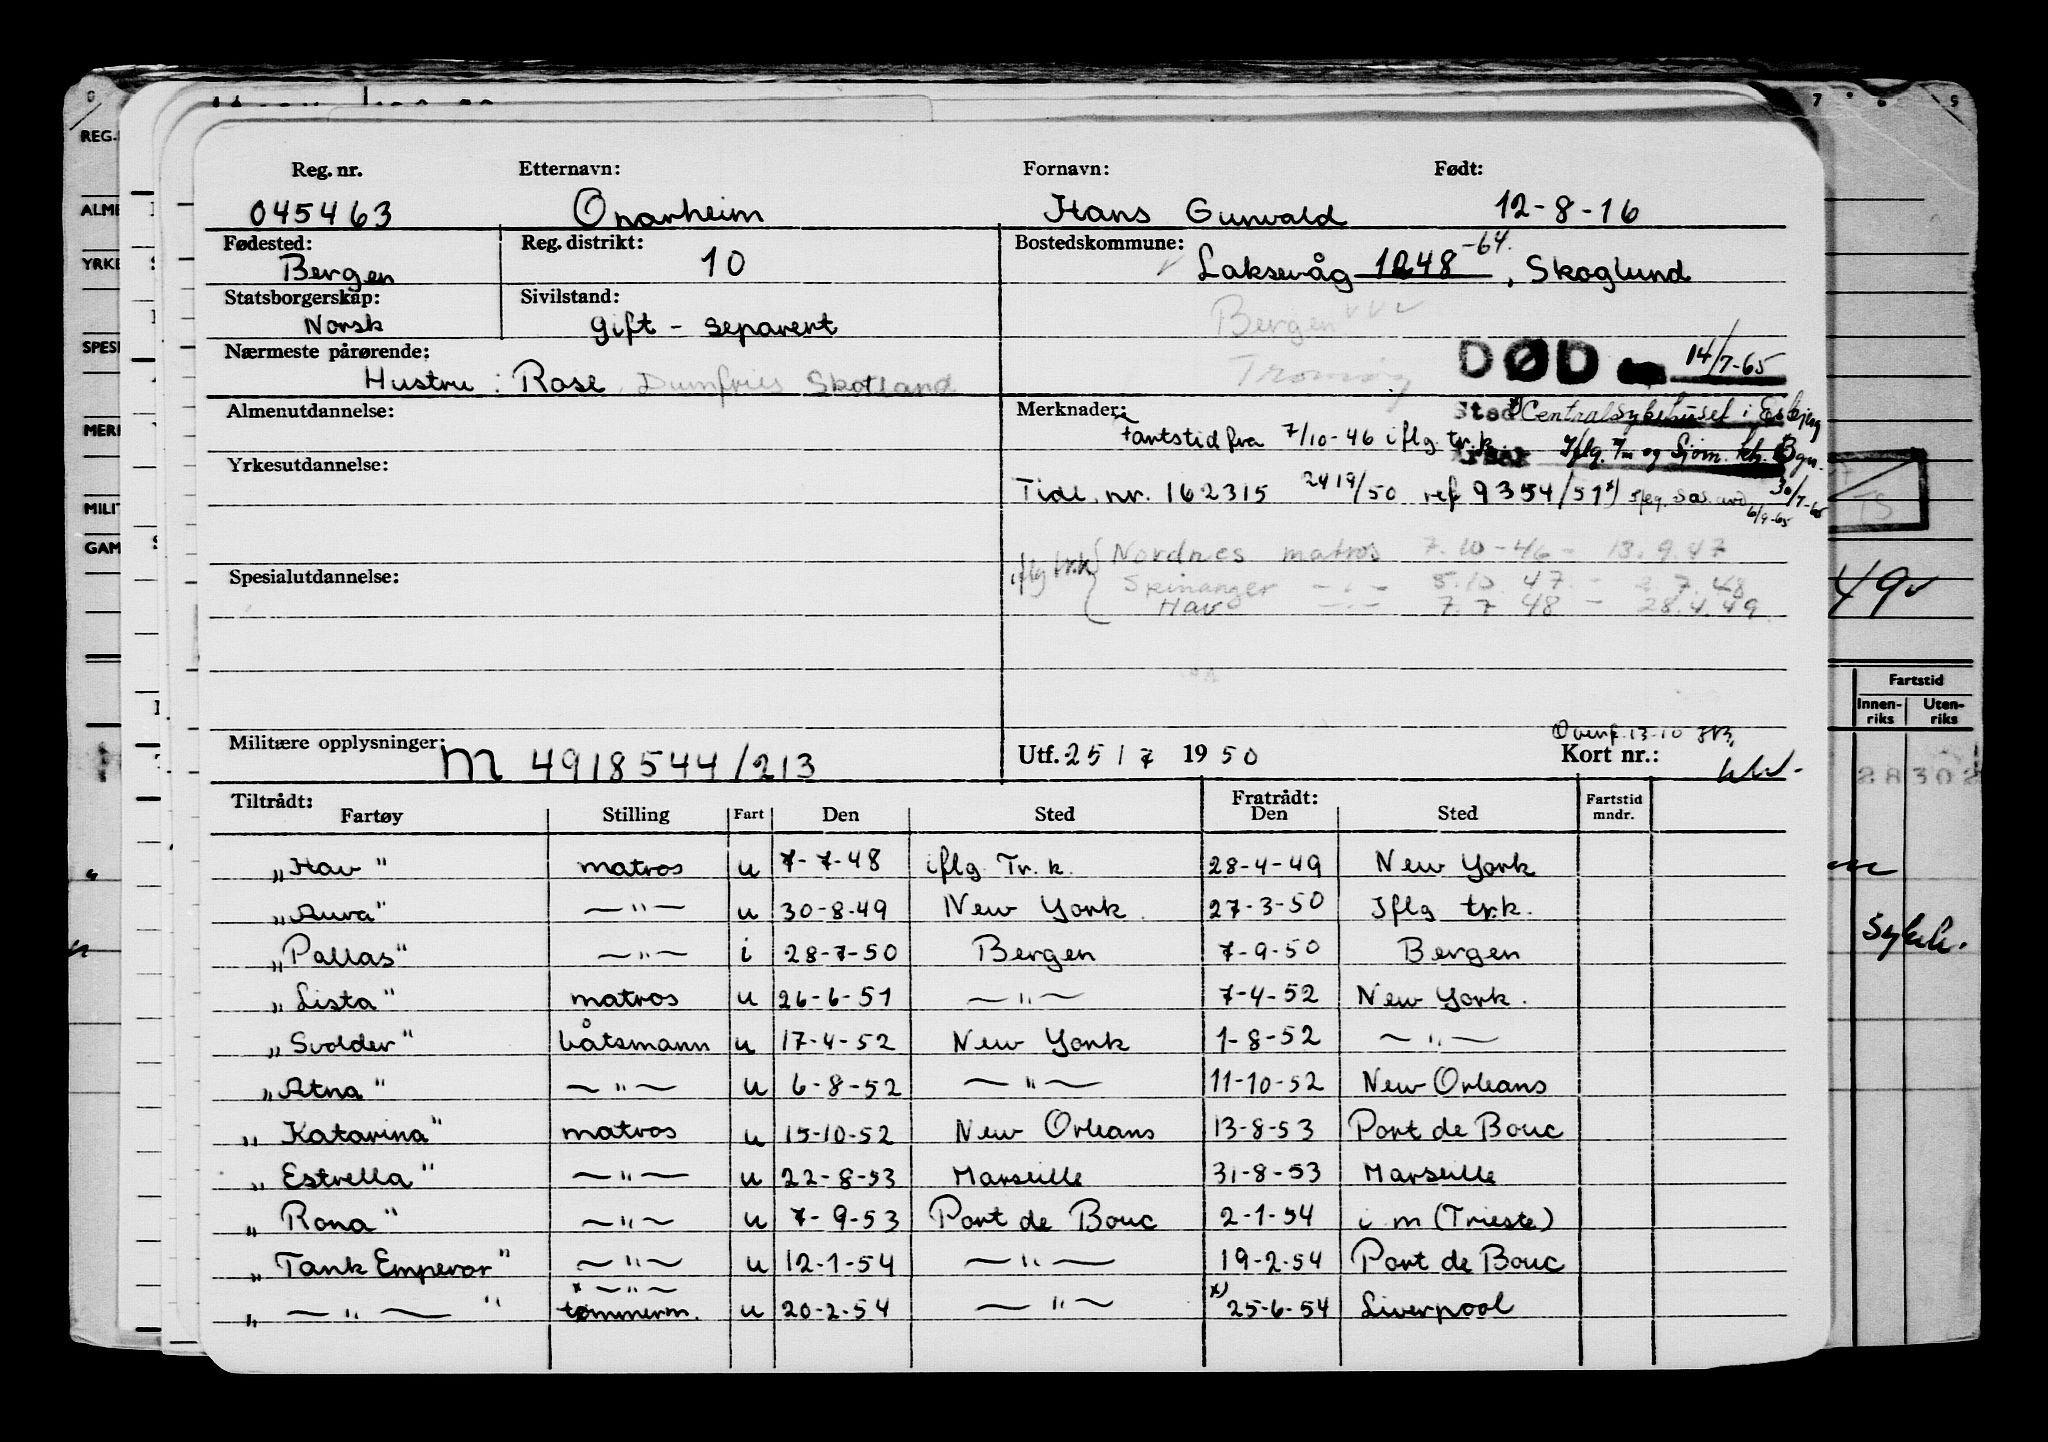 Reg. nr. Etternavn: Fornavn: Født:
045463 Onarheim Hans Gunvald 12-8-16
Fødested: Reg. distrikt: Bostedskommune:
Bergen 10 Laksevåg 1248 -64. , Skoglund
Statsborgerskap: Sivilstand:
Norsk gift - separert Bergen
Nærmeste pårørende: DØD 14/7-65
Hustru : Rose, Dumfries Skotland Tromøy
Almenutdannelse: Merknader: Sted Centralsykehuset i Esbjerg
Fartstid fra 7/10-46 iflg. tr.k. Iflg. og Sjøm. Bgn.
Yrkesutdannelse:
Tidl. nr. 162315 2419/50 ref 9354/51 30/7-65
6/9-65
Nordnes matros 7.10-46 - 13.9.47
iflg tr.k Skinanger -"- 5.10.47. - 2.7.48
Spesialutdannelse: Hav -"- 7.7 48 - 28.4.49
Overf. 13-10
Militære opplysninger: M 4918544/213 Utf. 25/7 1950 Kort nr.:
Tiltrådt: Fratrådt:
Fartøy Stilling Fart Den Sted Den Sted Fartstid mndr.
„Hav" matros u 7-7-48 iflg. Tr. k. 28-4-49 New York
„Aura" -"- u 30-8-49 New York. 27-3-50 Iflg tr.k.
„Pallas" -"- i 28-7-50 Bergen 7-9-50 Bergen
„Lista" matros u 26-6-51 -"- 7-4-52 New York.
„Svolder" båtsmann u 17-4-52 New York 1-8-52 -"-
„Atna" -"- u 6-8-52 -"- 11-10-52 New Orleans
„Katarina" matros u 15-10-52 New Orleans 13-8-53 Port de Bouc
„Estrella" -"- u 22-8-53 Marseille 31-8-53 Marseille
„Rona" -"- u 7-9-53 Port de Bouc 2-1-54 i m (Trieste)
„Tank Emperor" -"- u 12-1-54 -"- 19-2-54 Port de Bouc
x -"-
„ -"- " tømmerm. u 20-2-54 -"- x) 25-6-54 Liverpool
REG.
ALME
YRKE
SPESI
MERI
MILIT
GAM
7 6 5
TS
49
Fartstid
Innen-riks Uten-riks
28302
Sykeh.